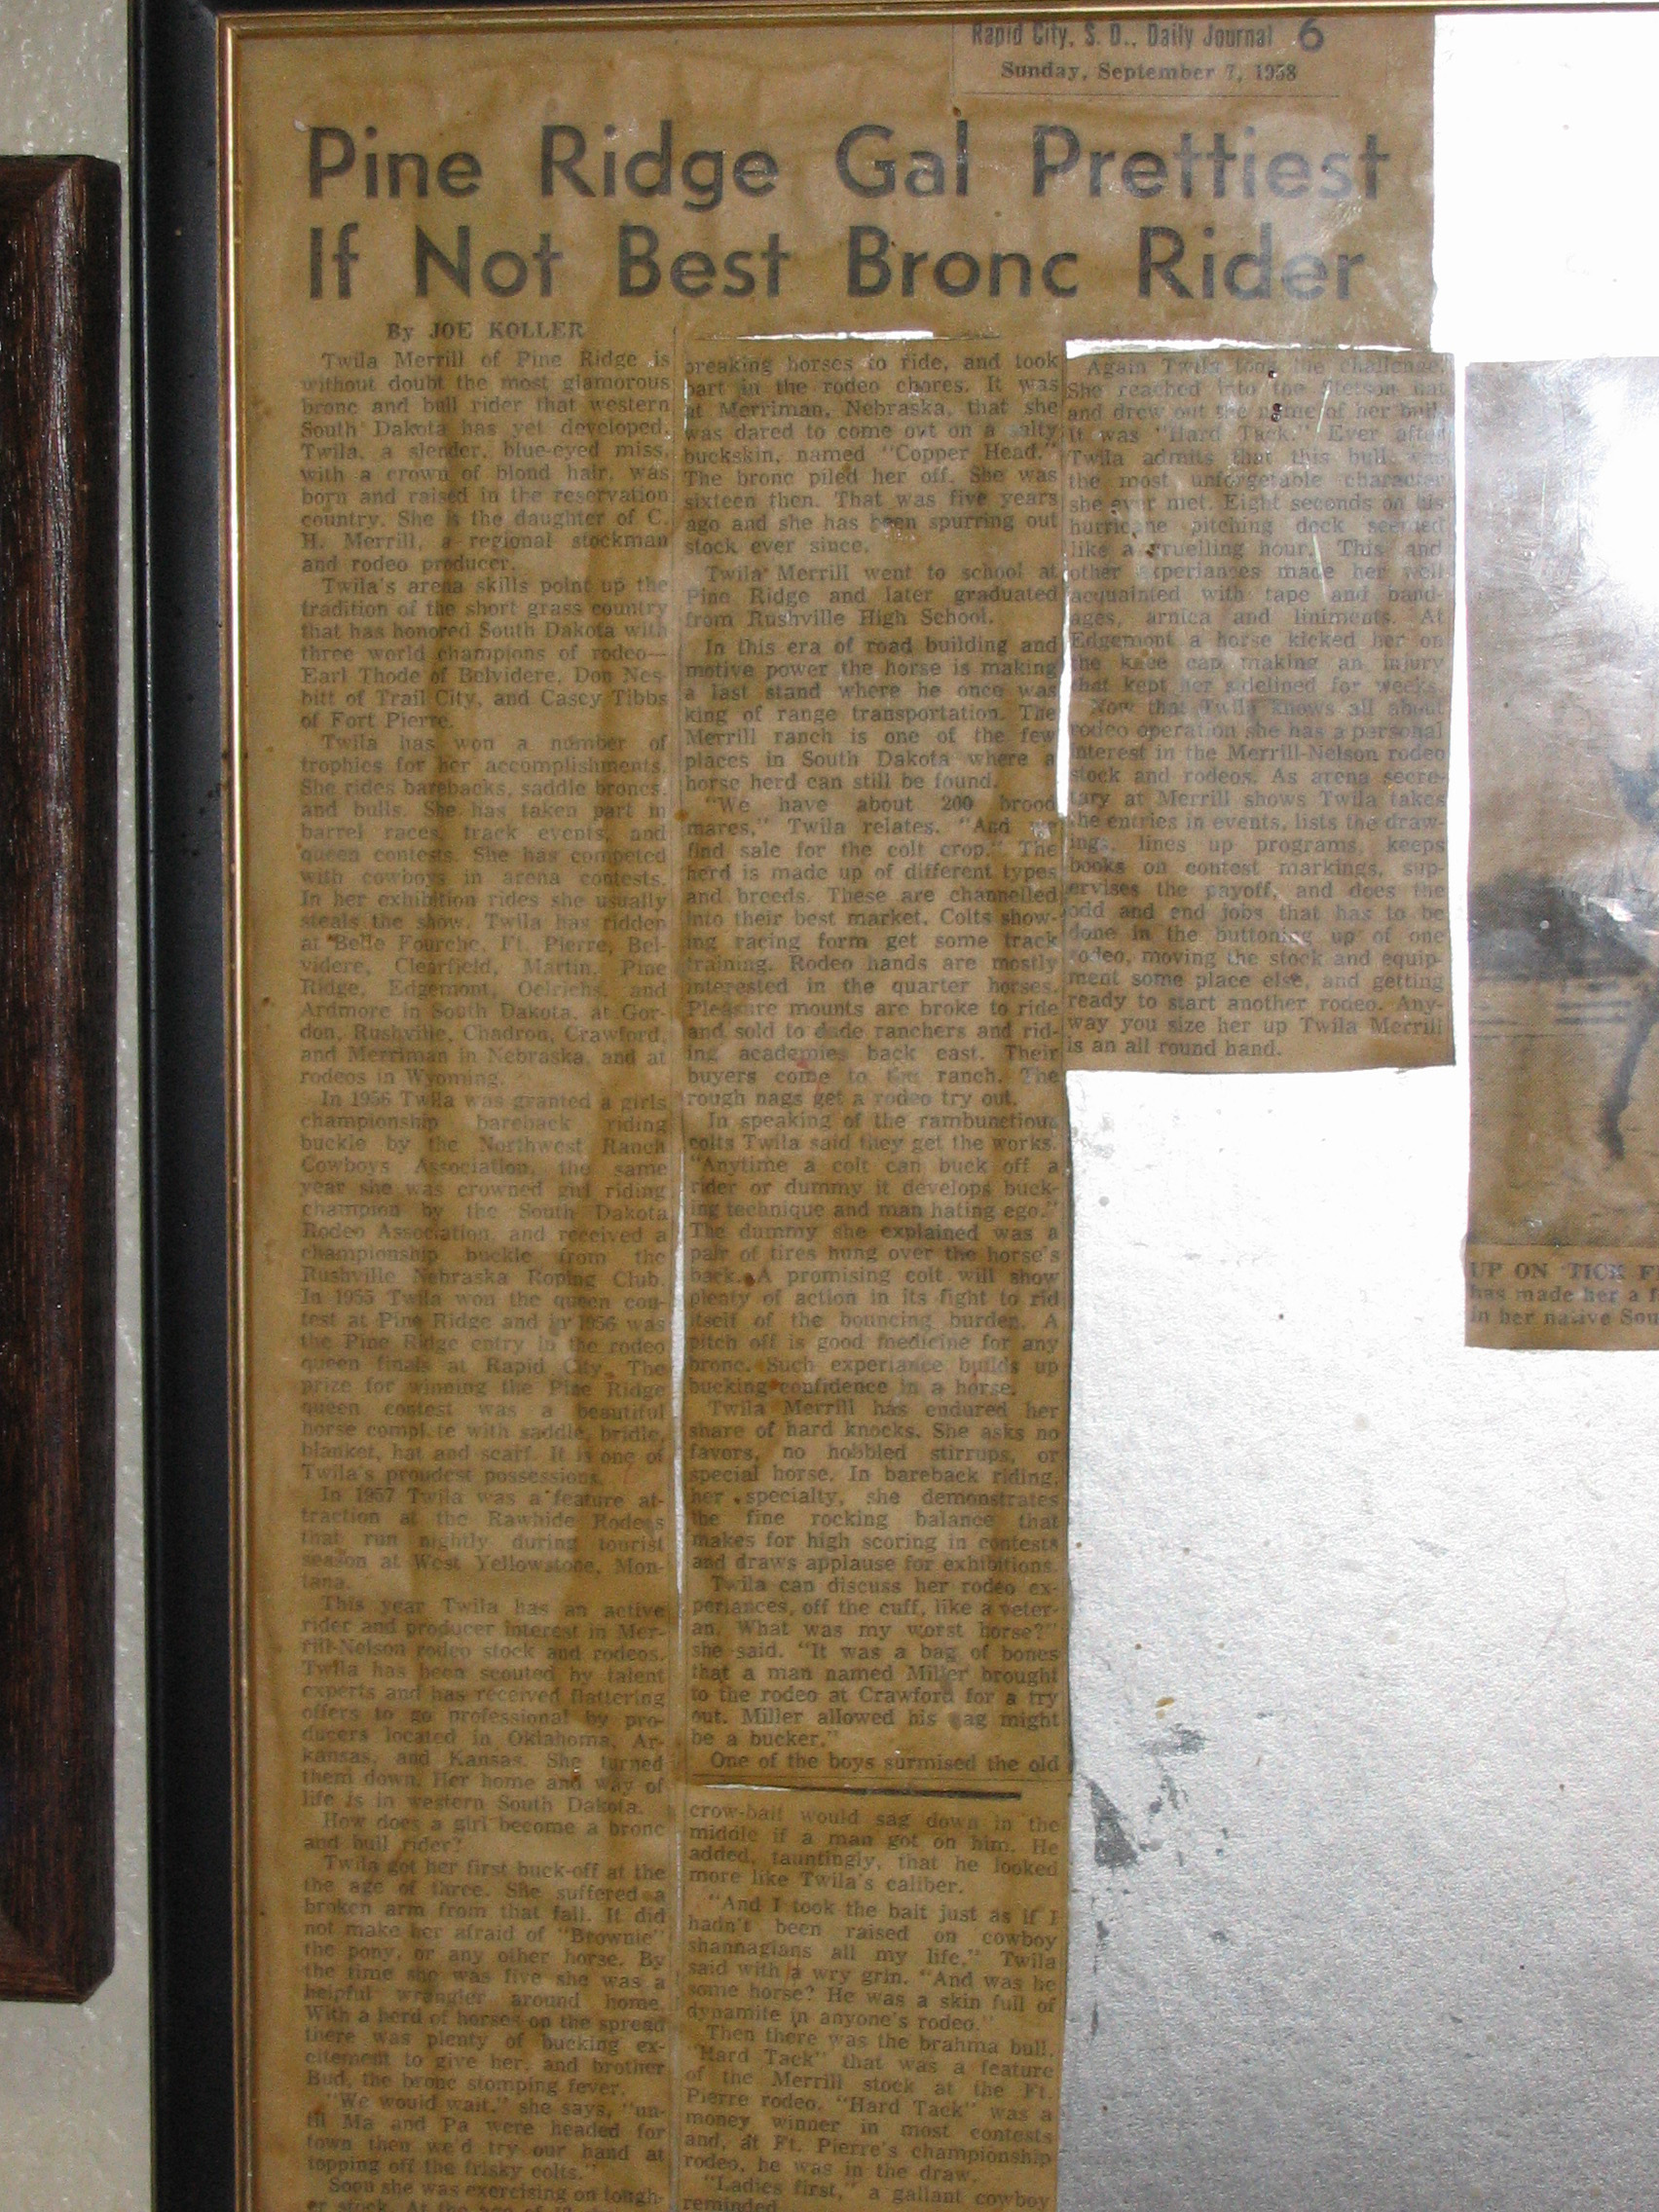 Rapid City, S. D., Daily Journal 6
Sunday, September 7, 1958
Pine Ridge Gal Prettiest
If Not Best Bronc Rider
By JOE KOLLER
Twila Merrill of Pine Ridge is
without doubt the most glamorous
bronc and bull rider that western
South Dakota has yet developed.
Twila, a slender, blue-eyed miss,
with a crown of blond hair, was
born and raised in the reservation
country. She is the daughter of C.
H. Merrill, a regional stockman
and rodeo producer.
Twila's arena skills point up the
tradition of the short grass country
that has honored South Dakota with
three world champions of rodeo—
Earl Thode of Belvidere, Don Nes-
bitt of Trail City, and Casey Tibbs
of Fort Pierre.
Twila has won a number of
trophies for her accomplishments.
She rides barebacks, saddle broncs,
and bulls. She has taken part in
barrel races, track events, and
queen contests. She has competed
with cowboys in arena contests.
In her exhibition rides she usually
steals the show. Twila has ridden
at Belle Fourche, Ft. Pierre, Bel-
videre, Clearfield, Martin, Pine
Ridge, Edgemont, Oelrichs, and
Ardmore in South Dakota, at Gor-
don, Rushville, Chadron, Crawford,
and Merriman in Nebraska, and at
rodeos in Wyoming.
In 1956 Twila was granted a girls
championship bareback riding
buckle by the Northwest Ranch
Cowboys Association, the same
year she was crowned girl riding
champion by the South Dakota
Rodeo Association, and received a
championship buckle from the
Rushville Nebraska Roping Club.
In 1955 Twila won the queen con-
test at Pine Ridge and in 1956 was
the Pine Ridge entry in the rodeo
queen finals at Rapid City. The
prize for winning the Pine Ridge
queen contest was a beautiful
horse complete with saddle, bridle,
blanket, hat and scarf. It is one of
Twila's proudest possessions.
In 1957 Twila was a feature at-
traction at the Rawhide Rodeos
that run nightly during tourist
season at West Yellowstone, Mon-
tana.
This year Twila has an active
rider and producer interest in Mer-
rill-Nelson rodeo stock and rodeos.
Twila has been scouted by talent
experts and has received flattering
offers to go professional by pro-
ducers located in Oklahoma, Ar-
kansas, and Kansas. She turned
them down. Her home and way of
life is in western South Dakota.
How does a girl become a bronc
and bull rider?
Twila got her first buck-off at the
the age of three. She suffered a
broken arm from that fall. It did
not make her afraid of "Brownie"
the pony, or any other horse. By
the time she was five she was a
helpful wrangler around home.
With a herd of horses on the spread
there was plenty of bucking ex-
citement to give her, and brother
Bud, the bronc stomping fever.
"We would wait," she says, "un-
til Ma and Pa were headed for
town then we'd try our hand at
topping off the frisky colts."
Soon she was exercising on tough-
er stock. At the age of
breaking horses to ride, and took
part in the rodeo chores. It was
at Merriman, Nebraska, that she
was dared to come out on a salty
buckskin, named "Copper Head."
The bronc piled her off. She was
sixteen then. That was five years
ago and she has been spurring out
stock ever since.
Twila Merrill went to school at
Pine Ridge and later graduated
from Rushville High School.
In this era of road building and
motive power the horse is making
a last stand where he once was
king of range transportation. The
Merrill ranch is one of the few
places in South Dakota where a
horse herd can still be found.
"We have about 200 brood
mares," Twila relates. "And we
find sale for the colt crop." The
herd is made up of different types
and breeds. These are channelled
into their best market. Colts show-
ing racing form get some track
training. Rodeo hands are mostly
interested in the quarter horses.
Pleasure mounts are broke to ride
and sold to dude ranchers and rid-
ing academies back east. Their
buyers come to the ranch. The
rough nags get a rodeo try out.
In speaking of the rambunctious
colts Twila said they get the works.
"Anytime a colt can buck off a
rider or dummy it develops buck-
ing technique and man hating ego."
The dummy she explained was a
pair of tires hung over the horse's
back. A promising colt will show
plenty of action in its fight to rid
itself of the bouncing burden. A
pitch off is good medicine for any
bronc. Such experiance builds up
bucking confidence in a horse.
Twila Merrill has endured her
share of hard knocks. She asks no
favors, no hobbled stirrups, or
special horse. In bareback riding,
her specialty, she demonstrates
the fine rocking balance that
makes for high scoring in contests
and draws applause for exhibitions.
Twila can discuss her rodeo ex-
periances, off the cuff, like a veter-
an. What was my worst horse?"
she said. "It was a bag of bones
that a man named Miller brought
to the rodeo at Crawford for a try
out. Miller allowed his nag might
be a bucker."
One of the boys surmised the old
crow-bait would sag down in the
middle if a man got on him. He
added, tauntingly, that he looked
more like Twila's caliber.
"And I took the bait just as if I
hadn't been raised on cowboy
shannagians all my life," Twila
said with a wry grin. "And was he
some horse? He was a skin full of
dynamite in anyone's rodeo."
Then there was the brahma bull,
"Hard Tack" that was a feature
of the Merrill stock at the Ft.
Pierre rodeo. "Hard Tack" was a
money winner in most contests
and, at Ft. Pierre's championship
rodeo, he was in the draw.
"Ladies first," a gallant cowboy
reminded.
Again Twila took the challenge.
She reached into the Stetson hat
and drew out the name of her bull.
It was "Hard Tack." Ever after
Twila admits that this bull was
the most unforgetable character
she ever met. Eight seconds on his
hurricane pitching deck seemed
like a gruelling hour. This and
other experiances made her well
acquainted with tape and band-
ages, arnica and liniments. At
Edgemont a horse kicked her on
the knee cap making an injury
that kept her sidelined for weeks.
Now that Twila knows all about
rodeo operation she has a personal
interest in the Merrill-Nelson rodeo
stock and rodeos. As arena secre-
tary at Merrill shows Twila takes
the entries in events, lists the draw-
ings, lines up programs, keeps
books on contest markings, sup-
ervises the payoff, and does the
odd and end jobs that has to be
done in the buttoning up of one
rodeo, moving the stock and equip-
ment some place else, and getting
ready to start another rodeo. Any-
way you size her up Twila Merrill
is an all round hand.
UP ON TICK F
has made her a f
in her native Sou